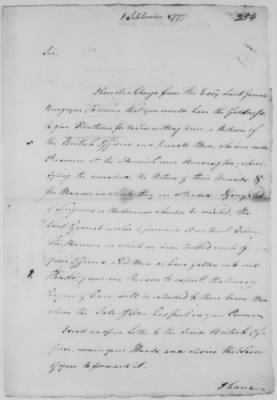 1 September 1777
Sir,
I have it in Charge from the Excy Lieut General
Burgoyne, to desire that you would have the Goodness
to give Directions for transmitting here, a Return of
the British Officers and private Men, who were made
Prisoners at the Skirmish near Bennington, speci-
fying the wounded, the Nature of their Wounds &
the Manner in which they are attended. If any
of Surgeons or Medicines should be wanted, the
Lieut General wishes to procure it without Delay.
The Manner in which we have treated such of
your Officers and Men as have fallen into our
Hands, gives me Reason to expect the
Degree of Care will be extended to those brave Men
whom the late Affair has put in your Power.
I send an open Letter to the Senior British Of-
ficer, now in your Hands, and desire the Favor
of you to forward it.
I have